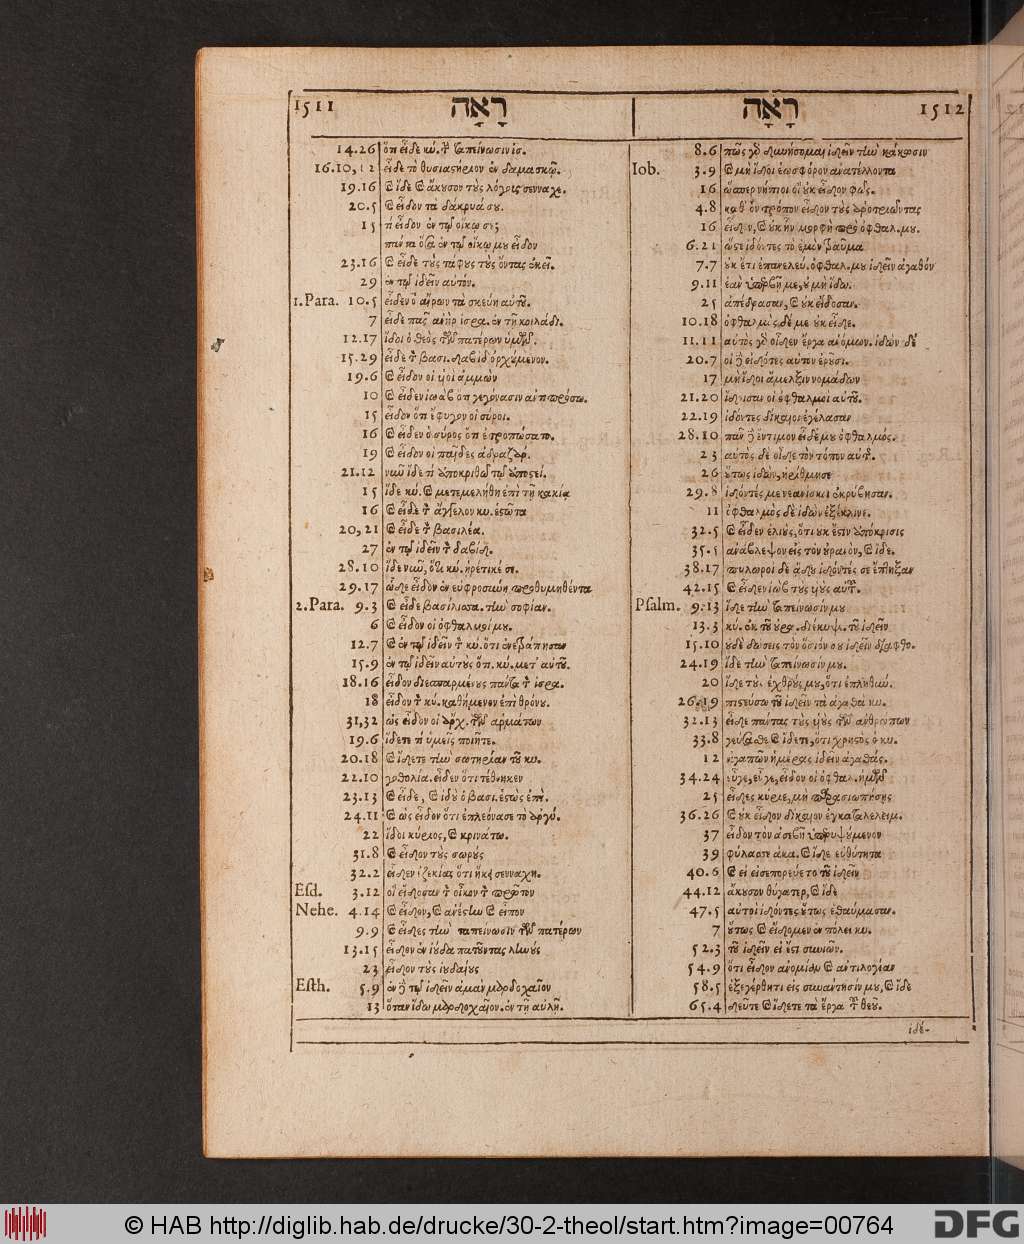 1511 רָאָה
14.26 ὅτι εἶδε κύ. τ̃ ταπείνωσιν ἰσ.
16.10,12 εἶδε τὸ θυσιαςήριον ἐν δαμασκῷ.
19.16 καὶ ἴδε καὶ ἄκουσον τοὺς λόγους σενναχ.
20.5 καὶ εἶδον τὰ δάκρυά σου.
15 τί εἶδον ἐν τῷ οἴκῳ σου;
πάντα ὅσα ἐν τῷ οἴκῳ μου εἶδον
23.16 καὶ εἶδε τοὺς τάφους τοὺς ὄντας ἐκεῖ.
29 ἐν τῷ ἰδεῖν αὐτὸν.
1.Para. 10.5 εἶδεν ὁ αἴρων τὰ σκεύη αὐτοῦ.
7 εἶδε πᾶς ἀνὴρ ἰσρα. ἐν τῇ κοιλάδι.
12.17 ἴδοι ὁ θεὸς τῶν πατέρων ὑμῶν.
15.29 εἶδε τ̃ βασι. δαβὶδ ὀρχούμενον.
19.6 καὶ εἶδον οἱ υἱοὶ ἀμμὼν
10 καὶ εἶδεν ἰωὰβ ὅτι γεγόνασιν ἀντιπρόσω.
15 εἶδον ὅτι ἔφυγον οἱ σύροι.
16 καὶ εἶδεν ὁ σύρος ὅτι ἐτροπώσατο.
19 καὶ εἶδον οἱ παῖδες ἀδρααζάρ.
21.12 νῦν ἴδε τί ἀποκριθῶ τῷ ἀποςεί.
15 ἴδε κύ. καὶ μετεμελήθη ἐπὶ τῇ κακίᾳ
16 καὶ εἶδε τ̃ ἄγγελον κυ. ἑςῶτα
20,21 καὶ εἶδε τ̃ βασιλέα.
27 ἐν τῷ ἰδεῖν τ̃ δαβίδ.
28.10 ἴδε νῦν, ὅτι κύ. ᾑρέτικέ σε.
29.17 ὧδε εἶδον ἐν εὐφροσύνῃ προθυμηθέντα
2.Para. 9.3 καὶ εἶδε βασίλισσα. τὴν σοφίαν.
6 καὶ εἶδον οἱ ὀφθαλμοί μου.
12.7 καὶ ἐν τῷ ἰδεῖν τ̃ κύ. ὅτι ἐνεξάπησαν
15.9 ἐν τῷ ἰδεῖν αὐτοὺς ὅτι. κύ. μετ' αὐτοῦ.
18.16 εἶδον διεσπαρμένους πάντα τ̃ ἰσρα.
18 εἶδον τ̃ κύ. καθήμενον ἐπὶ θρόνου.
31,32 ὡς εἶδον οἱ ἄρχ. τῶν ἁρμάτων
19.6 ἴδετε τί ὑμεῖς ποιῆτε.
20.18 καὶ ἴδετε τὴν σωτηρίαν τοῦ κυ.
22.10 γοθολία. εἶδεν ὅτι τέθνηκεν
23.13 καὶ εἶδε, καὶ ἰδοὺ ὁ βασι. ἑςὼς ἐπὶ.
24.11 καὶ ὡς εἶδον ὅτι ἐπλεόνασε τὸ ἀργύ.
22 ἴδοι κύριος, καὶ κρινάτω.
31.8 καὶ εἶδον τοὺς σωροὺς
32.2 εἶδεν ἐζεκίας ὅτι ἥκει σενναχη.
Esd. 3.12 οἳ εἴδοσαν τ̃ οἶκον τ̃ πρῶτον
Nehe. 4.14 καὶ εἶδον, καὶ ἀνέςην καὶ εἶπον
9.9 καὶ εἶδες τὴν ταπείνωσιν τῶν πατέρων
13.15 εἶδον ἐν ἰούδα πατοῦντας ληνοὺς
23 εἶδον τοὺς ἰουδαίους
Esth. 5.9 ἐν δὲ τῷ ἰδεῖν ἀμὰν μαρδοχαῖον
13 ὅταν ἴδω μαρδοχαῖον. ἐν τῇ αὐλῇ.
רָאָה 1512
8.6 πῶς γὰρ δυνήσομαι ἰδεῖν τὴν κάκωσιν
Iob. 3.9 καὶ μὴ ἴδοι ἑωσφόρον ἀνατέλλοντα
16 ὥσπερ νήπιοι οἳ οὐκ εἶδον φῶς.
4.8 καθ' ὃν τρόπον εἶδον τοὺς ἀροτριῶντας
16 εἶδον, καὶ οὐκ ἦν μορφὴ πρὸ ὀφθαλ. μου.
6.21 ὥςε ἰδόντες τὸ ἐμὸν τραῦμα
7.7 οὐκ ἔτι ἐπανελεύ. ὀφθαλ. μου ἰδεῖν ἀγαθόν
9.11 ἐὰν ὑπερβῇ με, οὐ μὴ ἴδω.
25 ἀπέδρασαν, καὶ οὐκ εἴδοσαν.
10.18 ὀφθαλμὸς δέ με οὐκ εἶδε.
11.11 αὐτὸς γὰρ οἶδεν ἔργα ἀνόμων. ἰδὼν δὲ
20.7 οἱ δὲ εἰδότες αὐτὸν ἐροῦσι.
17 μὴ ἴδοι ἄμελξιν νομάδων
21.20 ἴδοισαν οἱ ὀφθαλμοὶ αὐτοῦ.
22.19 ἰδόντες δίκαιοι ἐγέλασαν
28.10 πᾶν δὲ ἔντιμον εἶδέ μου ὀφθαλμός.
23 αὐτὸς δὲ οἶδε τὸν τόπον αὐτ̃.
26 οὕτως ἰδὼν, ἠρίθμησε
29.8 ἰδόντες με νεανίσκοι ἐκρύβησαν.
11 ὀφθαλμὸς δὲ ἰδών ἐξέκλινε.
32.5 καὶ εἶδεν ἐλιοὺς, ὅτι οὐκ ἔςιν ἀπόκρισις
35.5 ἀνάβλεψον εἰς τὸν οὐρανὸν, καὶ ἴδε.
38.17 πυλωροὶ δὲ ᾅδου ἰδόντές σε ἔπτηξαν
42.15 καὶ εἶδεν ἰὼβ τοὺς υἱοὺς αὐτ̃.
Psalm. 9.13 ἴδε τὴν ταπείνωσίν μου
13.3 κύ. ἐκ τοῦ οὐρα. διέκυψε. τοῦ ἰδεῖν
15.10 οὐδὲ δώσεις τὸν ὅσιόν σου ἰδεῖν διαφθο.
24.19 ἴδε τὴν ταπείνωσίν μου.
20 ἴδε τοὺς ἐχθρούς μου, ὅτι ἐπληθύν.
26.19 πιςεύσω τοῦ ἰδεῖν τὰ ἀγαθὰ κυ.
32.13 εἶδε πάντας τοὺς υἱοὺς τῶν ἀνθρώπων
33.8 γεύσασθε καὶ ἴδετε, ὅτι χρηςὸς ὁ κυ.
12 ἀγαπῶν ἡμέρας ἰδεῖν ἀγαθάς.
34.24 εὖγε, εὖγε, εἶδον οἱ ὀφθαλ. ἡμῶν
25 εἶδες κύριε, μὴ παρασιωπήσῃς
36.26 καὶ οὐκ εἶδον δίκαιον ἐγκαταλελειμ.
37 εἶδον τὸν ἀσεβῆ ὑπερυψούμενον
39 φύλασσε ἀκα. καὶ ἴδε εὐθύτητα
40.6 καὶ εἰ εἰσεπορεύετο τοῦ ἰδεῖν
44.12 ἄκουσον θύγατερ, καὶ ἴδε
47.5 αὐτοὶ ἰδόντες οὕτως ἐθαύμασαν.
7 οὕτως καὶ εἴδομεν ἐν πόλει κυ.
52.3 τοῦ ἰδεῖν εἰ ἔςι συνιῶν.
54.9 ὅτι εἶδον ἀνομίαν καὶ ἀντιλογίαν
58.5 ἐξεγέρθητι εἰς συνάντησίν μου, καὶ ἴδε
65.4 δεῦτε καὶ ἴδετε τὰ ἔργα τ̃ θεοῦ.
ἰδέ-
© HAB http://diglib.hab.de/drucke/30-2-theol/start.htm?image=00764
DFG